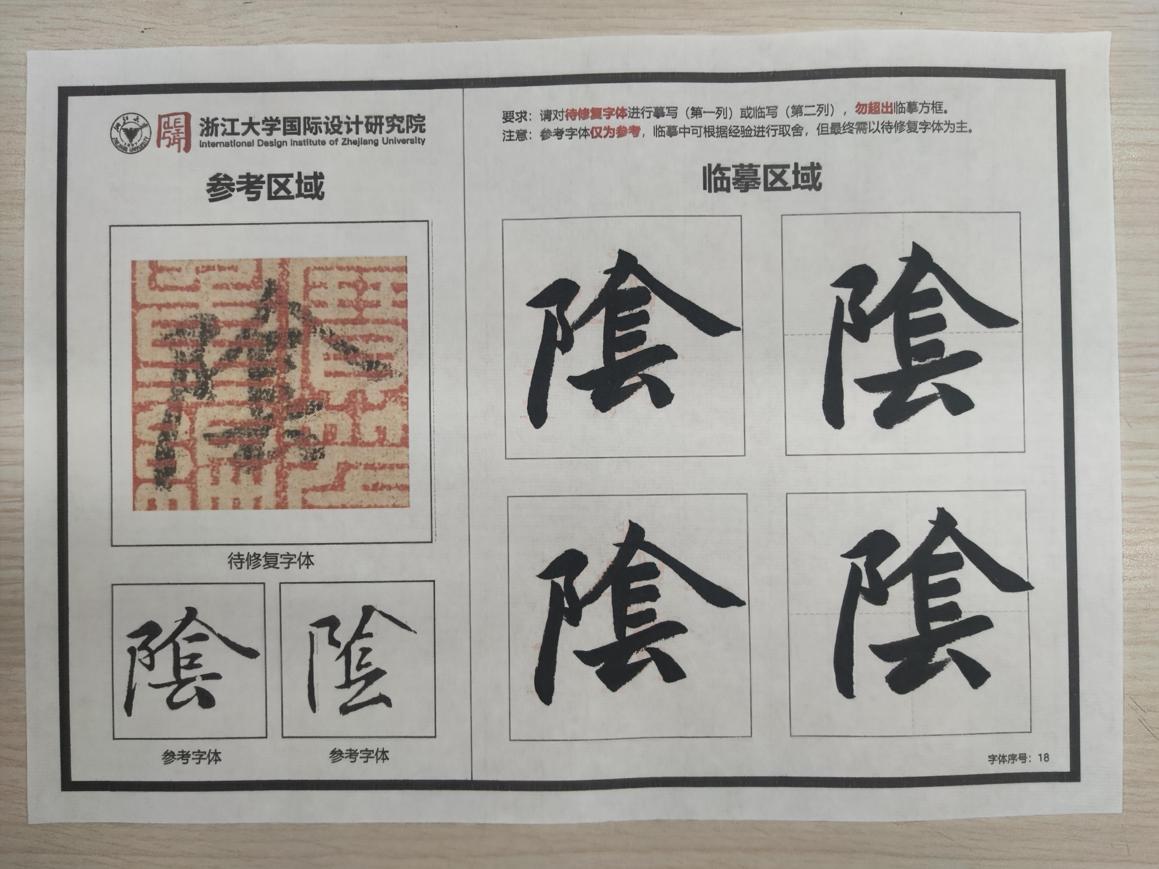 浙江大学国际设计研究院
International Design Institute of Zhejiang University
参考区域
待修复字体
陰
陰
参考字体
参考字体
要求：请对待修复字体进行摹写（第一列）或临写（第二列），勿超出临摹方框。
注意：参考字体仅为参考，临摹中可根据经验进行取舍，但最终需以待修复字体为主。
临摹区域
陰
陰
陰
陰
字体序号：18